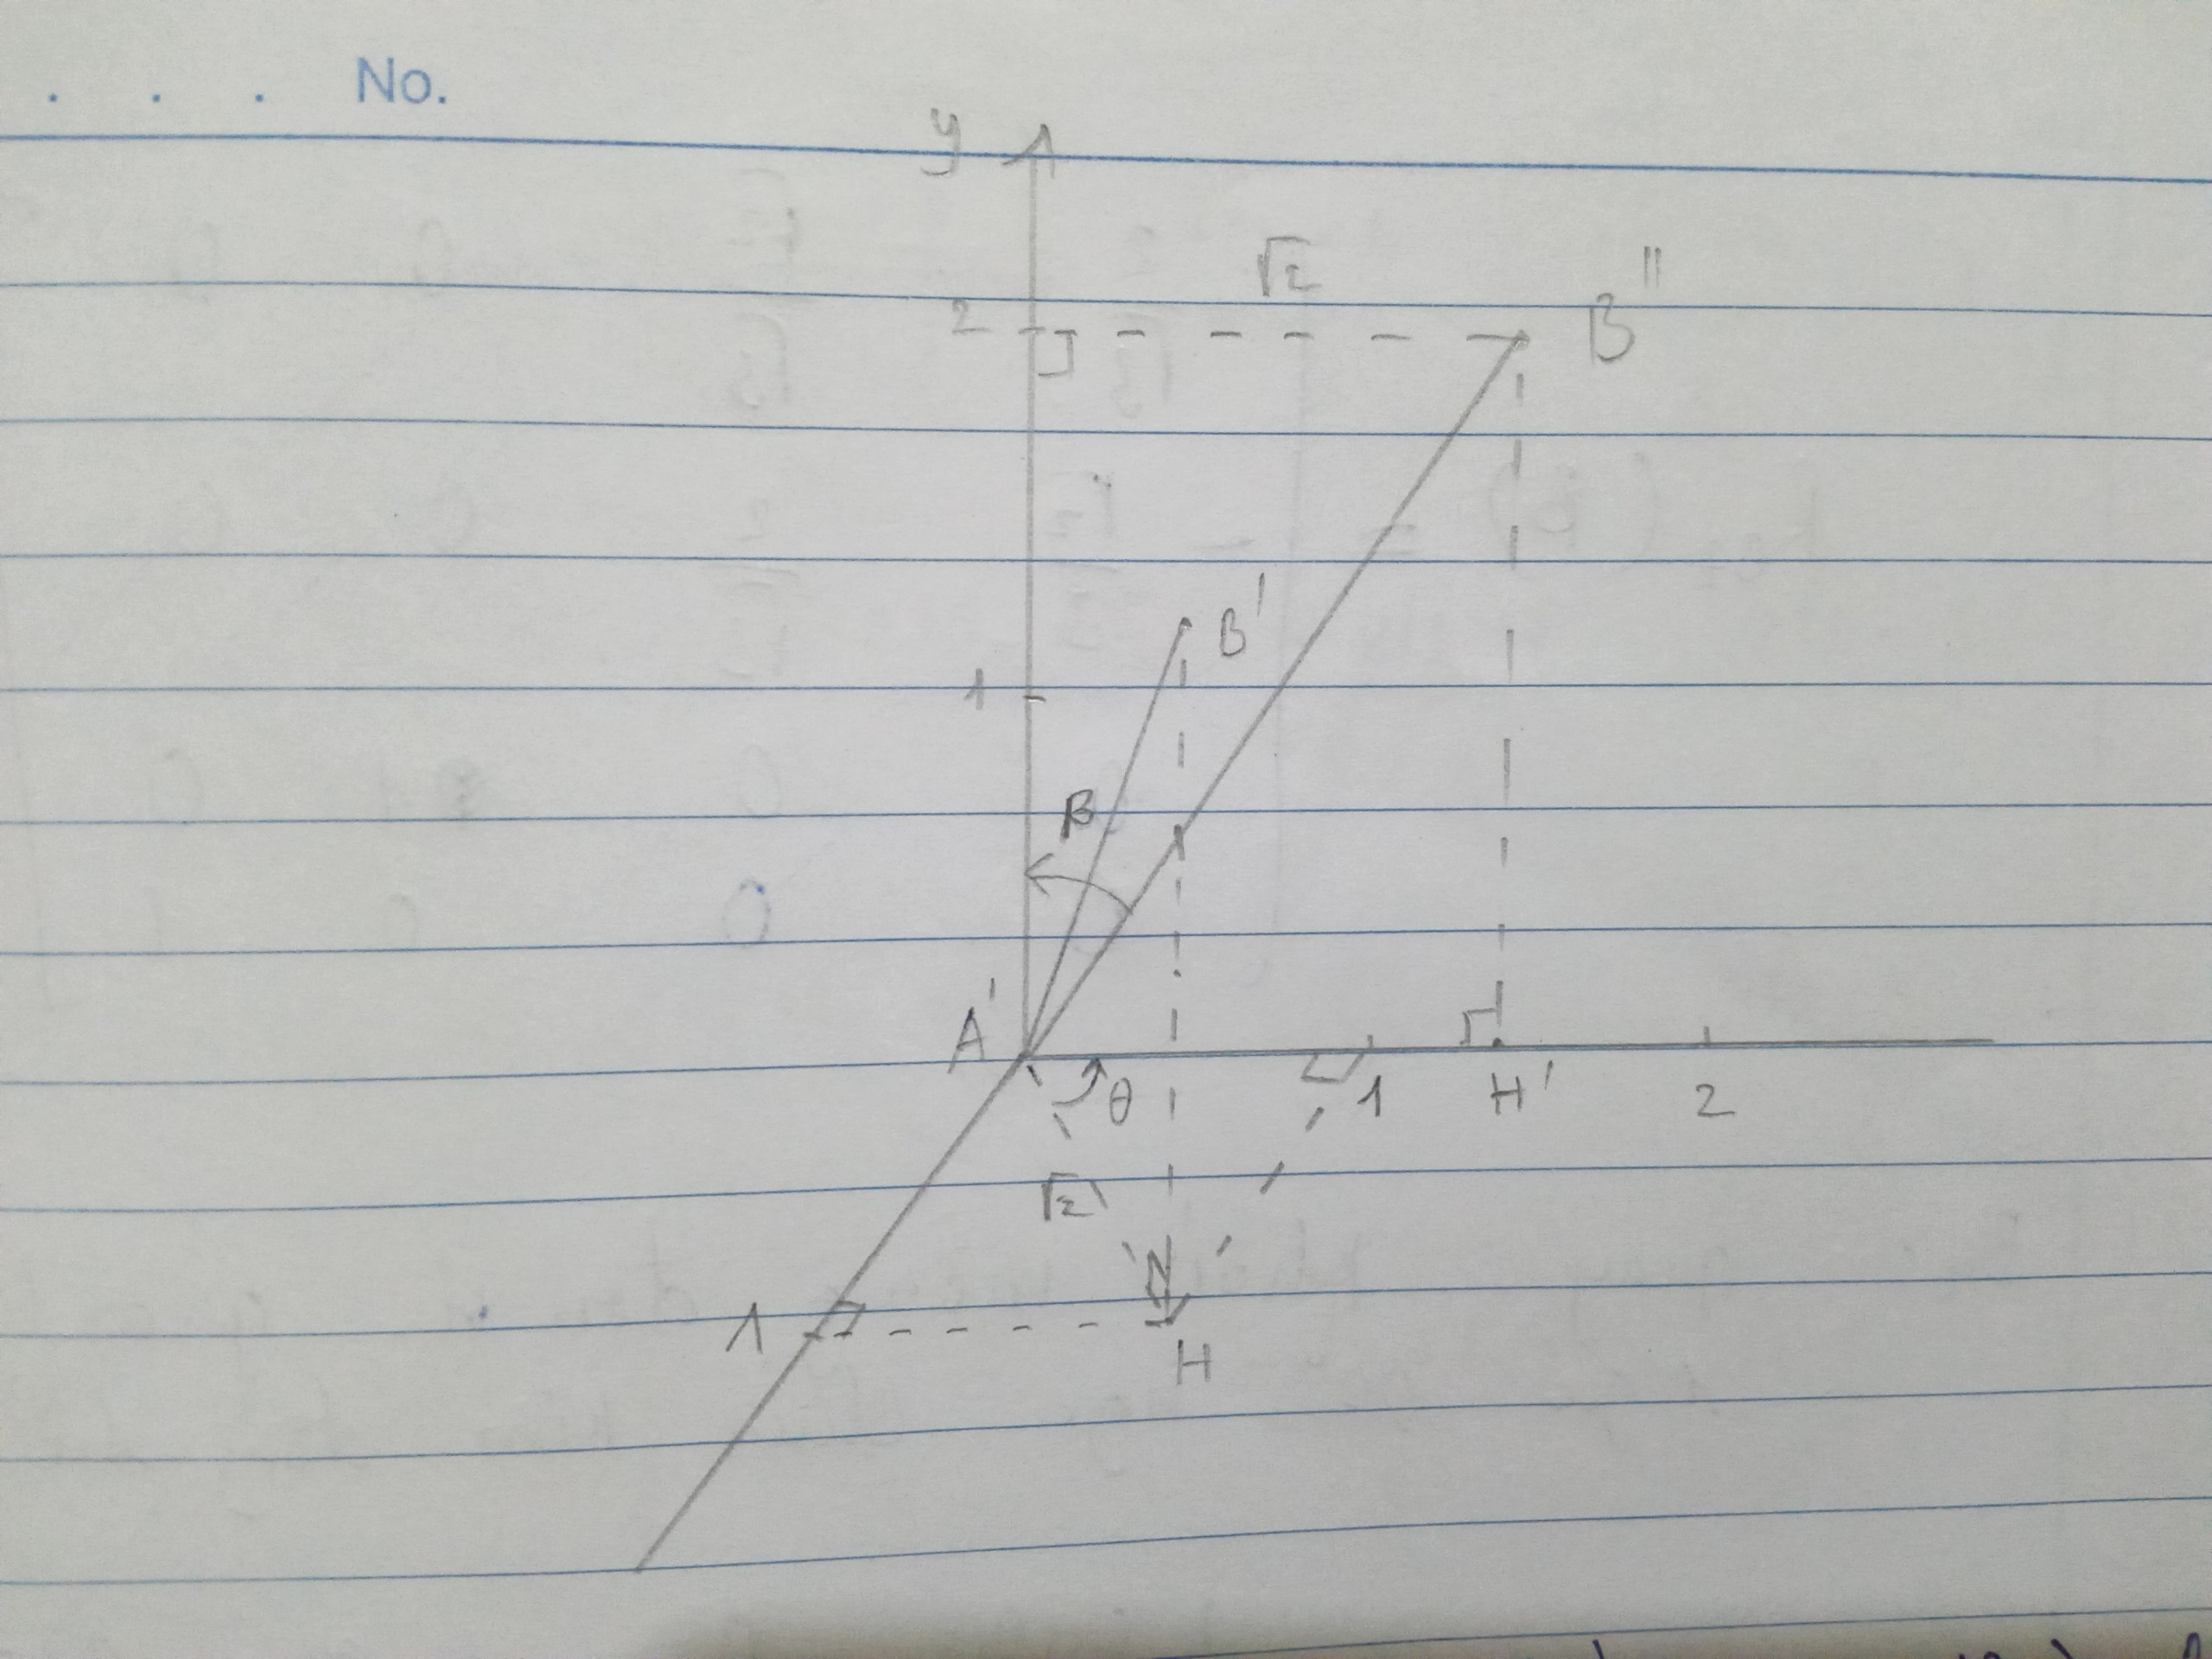 No.
y
√2
2
B"
B'
1
β
A'
θ
1
H'
2
√2
1
H